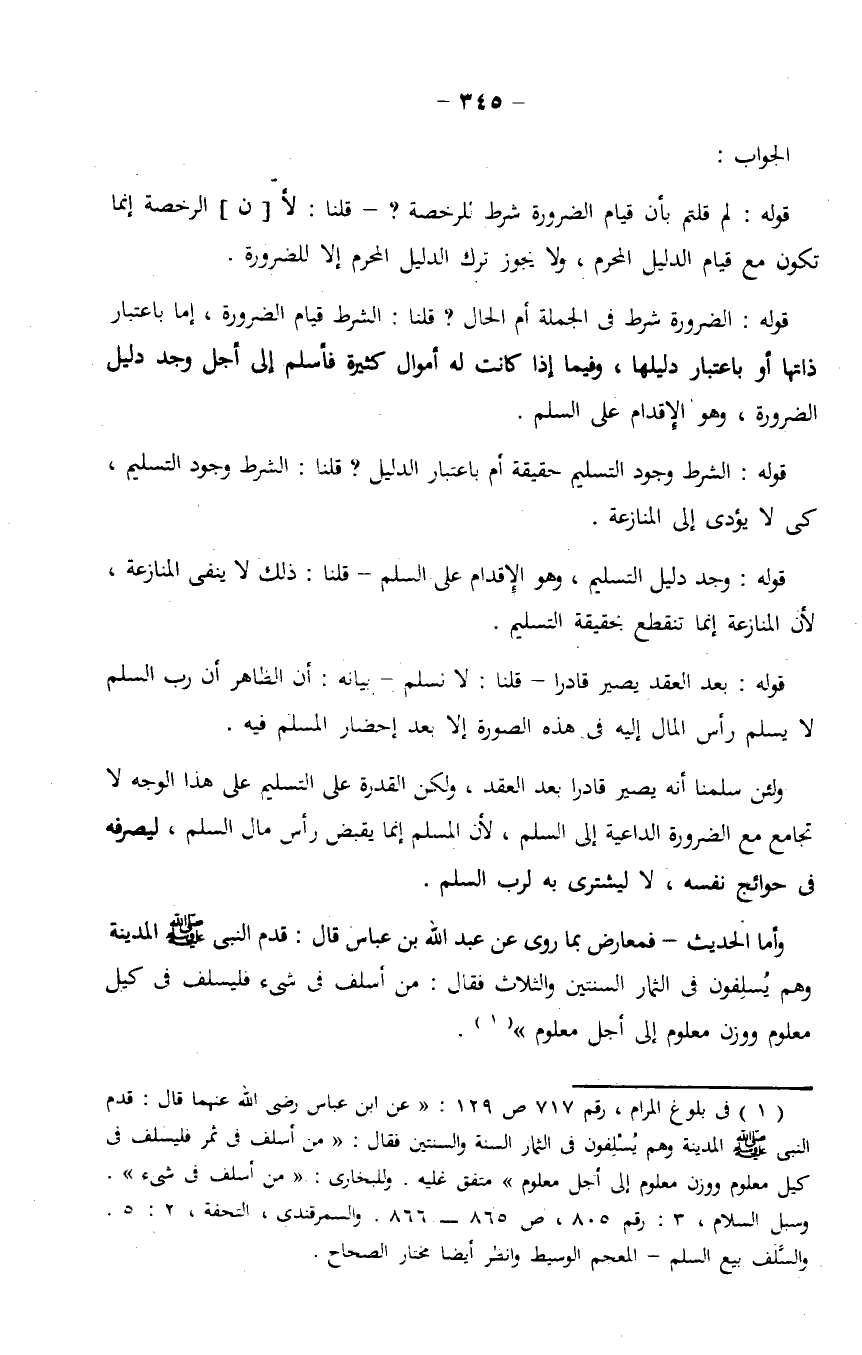 – ٣٤٥ –
الجواب :
قوله : لم قلتم بأن قيام الضرورة شرط للرخصة ؟ – قلنا : لأ [ ن ] الرخصة إنما
تكون مع قيام الدليل المحرم ، ولا يجوز ترك الدليل المحرم إلا للضرورة .
قوله : الضرورة شرط فى الجملة أم الحال ؟ قلنا : الشرط قيام الضرورة ، إما باعتبار
ذاتها أو باعتبار دليلها ، وفيما إذا كانت له أموال كثيرة فأسلم إلى أجل وجد دليل
الضرورة ، وهو الإقدام على السلم .
قوله : الشرط وجود التسليم حقيقة أم باعتبار الدليل ؟ قلنا : الشرط وجود التسليم ،
كى لا يؤدى إلى المنازعة .
قوله : وجد دليل التسليم ، وهو الإقدام على السلم – قلنا : ذلك لا ينفى المنازعة ،
لأن المنازعة إنما تنقطع بحقيقة التسليم .
قوله : بعد العقد يصير قادرا – قلنا : لا نسلم – بيانه : أن الظاهر أن رب السلم
لا يسلم رأس المال إليه فى هذه الصورة إلا بعد إحضار المسلم فيه .
ولئن سلمنا أنه يصير قادرا بعد العقد ، ولكن القدرة على التسليم على هذا الوجه لا
تجامع مع الضرورة الداعية إلى السلم ، لأن المسلم إنما يقبض رأس مال السلم ، ليصرفه
فى حوائج نفسه ، لا ليشترى به لرب السلم .
وأما الحديث – فمعارض بما روى عن عبد الله بن عباس قال : قدم النبى ﷺ المدينة
وهم يُسلِفون فى الثمار السنتين والثلاث فقال : من أسلف فى شىء فليسلف فى كيل
معلوم ووزن معلوم إلى أجل معلوم »(١) .
( ١ ) فى بلوغ المرام ، رقم ٧١٧ ص ١٢٩ : « عن ابن عباس رضى الله عنهما قال : قدم
النبى ﷺ المدينة وهم يُسْلِفون فى الثمار السنة والسنتين فقال : « من أسلف فى ثمر فليسلف فى
كيل معلوم ووزن معلوم إلى أجل معلوم » متفق غليه . وللبخارى : « من أسلف فى شىء » .
وسبل السلام ، ٣ : رقم ٨٠٥ ، ص ٨٦٥ – ٨٦٦ . والسمرقندى ، التحفة ، ٢ : ٥ .
والسَّلف بيع السلم – المعجم الوسيط وانظر أيضا مختار الصحاح .